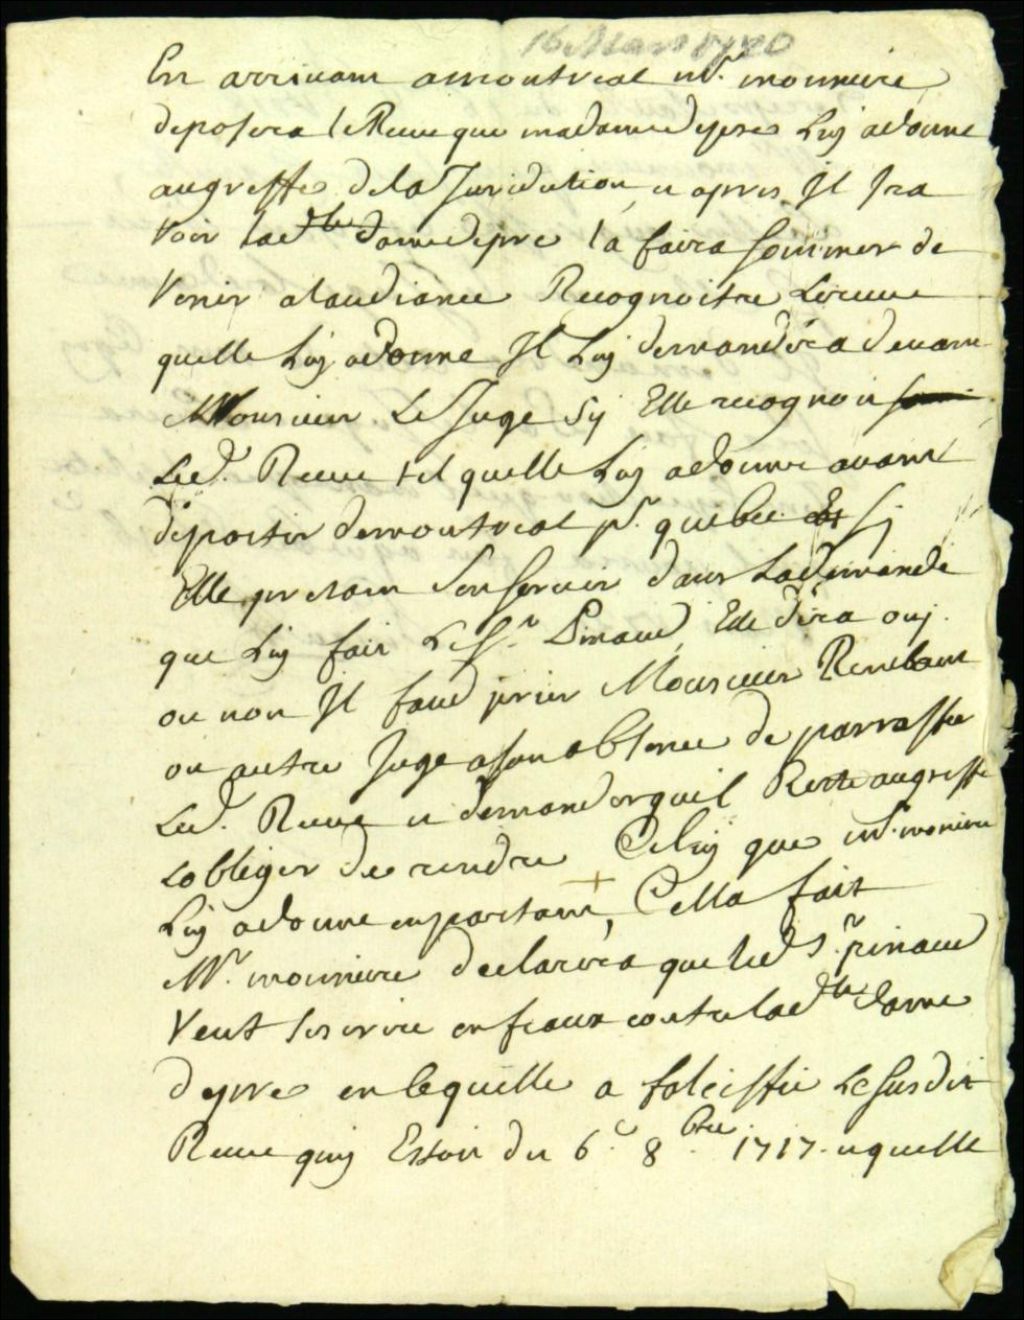 16 Mars 1720
En arrivant a montreal mr. mouniere
deposera le Receu que madame depre Luy a donne
au greffe de la Juridiction, et apres Il Ira
Voir lad.te dame depre la faira sommer de
Venir a laudiance Recognoitre Le receu
quelle Luy a donne Il Luy demandera devant
Monsieur Le Juge sy Elle recognoit
Led. Receu tel quelle Luy a donne avant
departir de montreal pr. quebec Et sy
Elle pretant sen servir dans La demande
que Luy fait Le Sr. Pinaud, Elle dira ouy
ou non Il faud prier Monsieur
ou autre Juge a son absence de parraffer
Led. Receu et demander quil Reste au greffe
Lobliger de rendre Celuy que mr. moniere
Luy a donne en partant, Cella fait
Mr. mouniere declarera que led Sr. pinaud
Veut Inscrire en feaux contre lad.te dame
depre en ce quelle a falciffie Le susdit
Receu quy Estoit du 6e 8bre 1717. et quelle